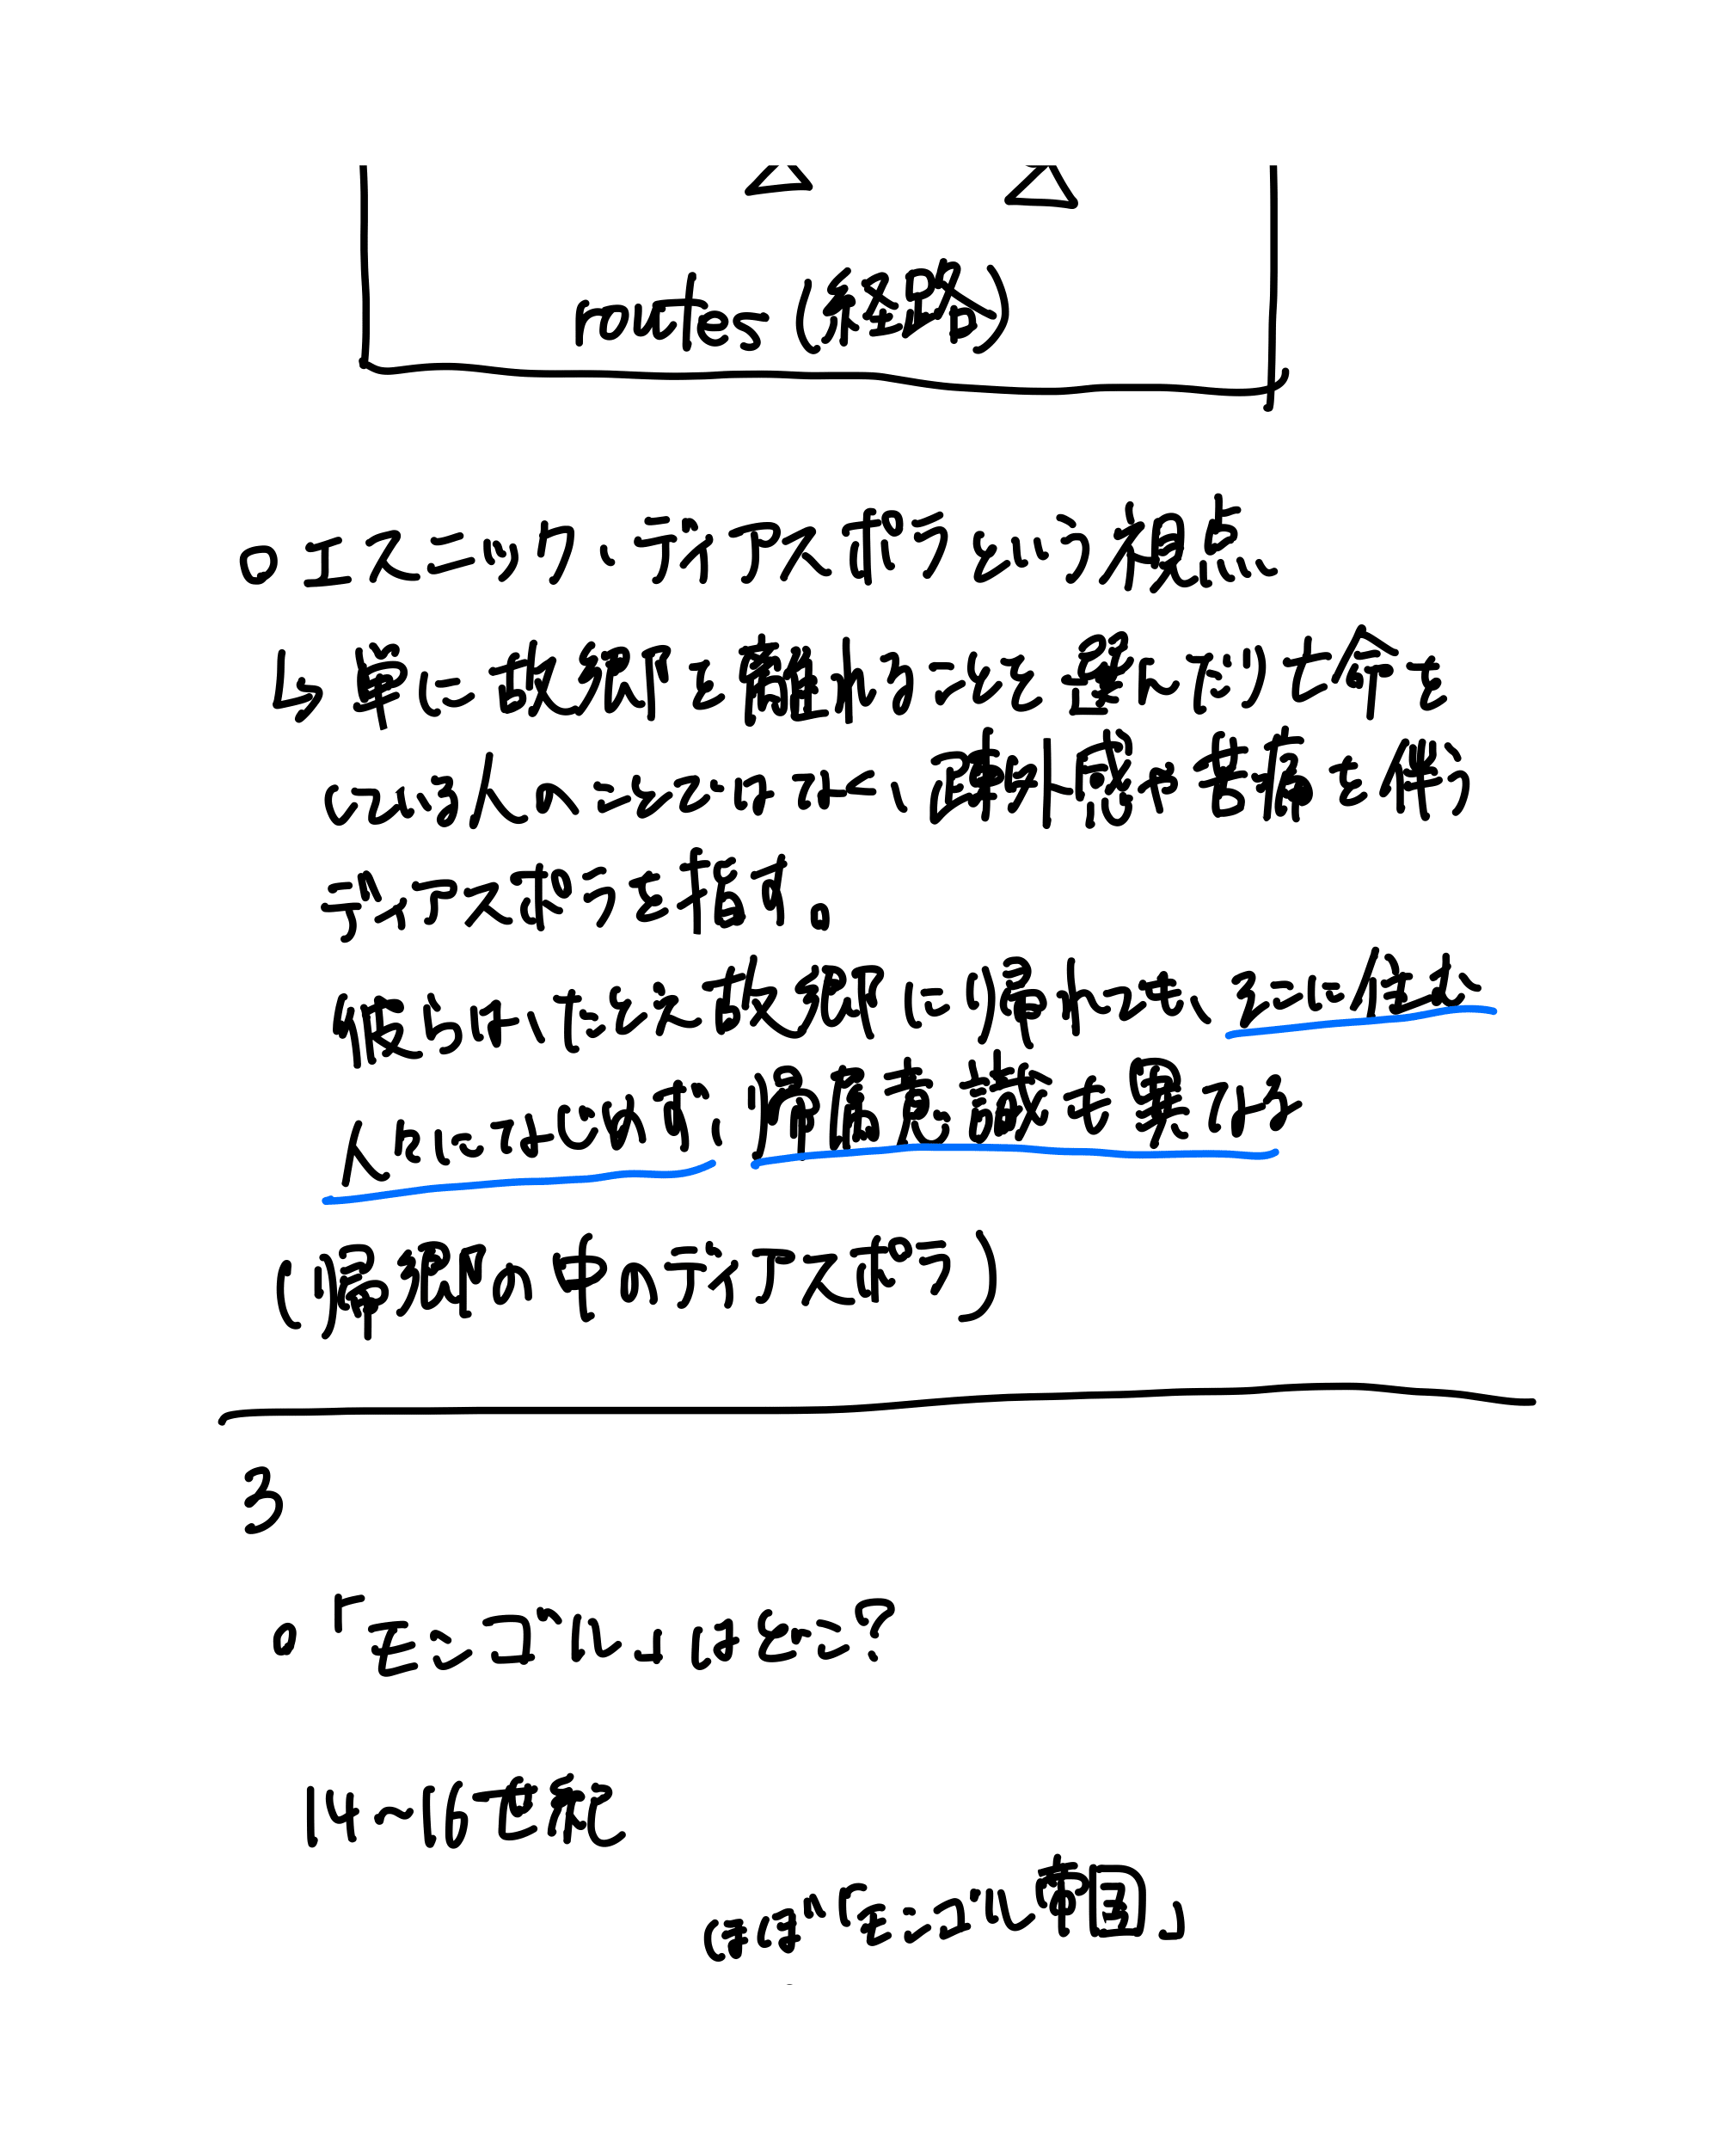 routes (経路)
○エスニック・ディアスポラという視点…
↳単に故郷を離れることを強いられた人々を
いている人のことではなく、疎外感や苦痛を伴う
ディアスポラを指す。
彼らは、たとえ故郷に帰れても、そこに住む
人々になじめず、帰属意識も異なる
(帰郷の中のディアスポラ)
3
○「モンゴル」はどこ?
14〜16世紀
ほぼ「モンゴル帝国」